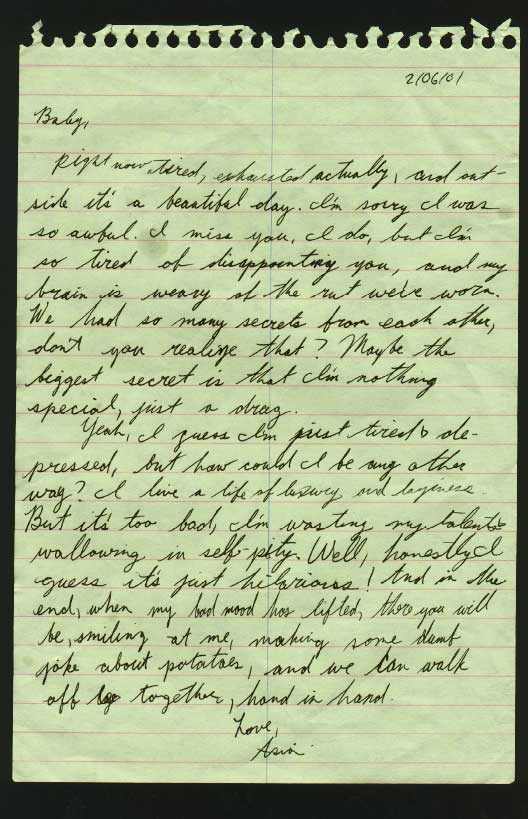 2/06/01
Baby,
Right now tired, exhausted actually, and out-
side it's a beautiful day. I'm sorry I was
so awful. I miss you, I do, but I'm
so tired of disappointing you, and my
brain is weary of the rut we've worn.
We had so many secrets from each other,
don't you realize that? Maybe the
biggest secret is that I'm nothing
special, just a drag.
Yeah, I guess I'm just tired & de-
pressed, but how could I be any other
way? I live a life of luxury and laziness.
But it's too bad, I'm wasting my talents
wallowing in self-pity. Well, honestly I
guess it's just hilarious! And in the
end, when my bad mood has lifted, there you will
be, smiling at me, making some dumb
joke about potatoes, and we can walk
off together, hand in hand.
Love,
Asia